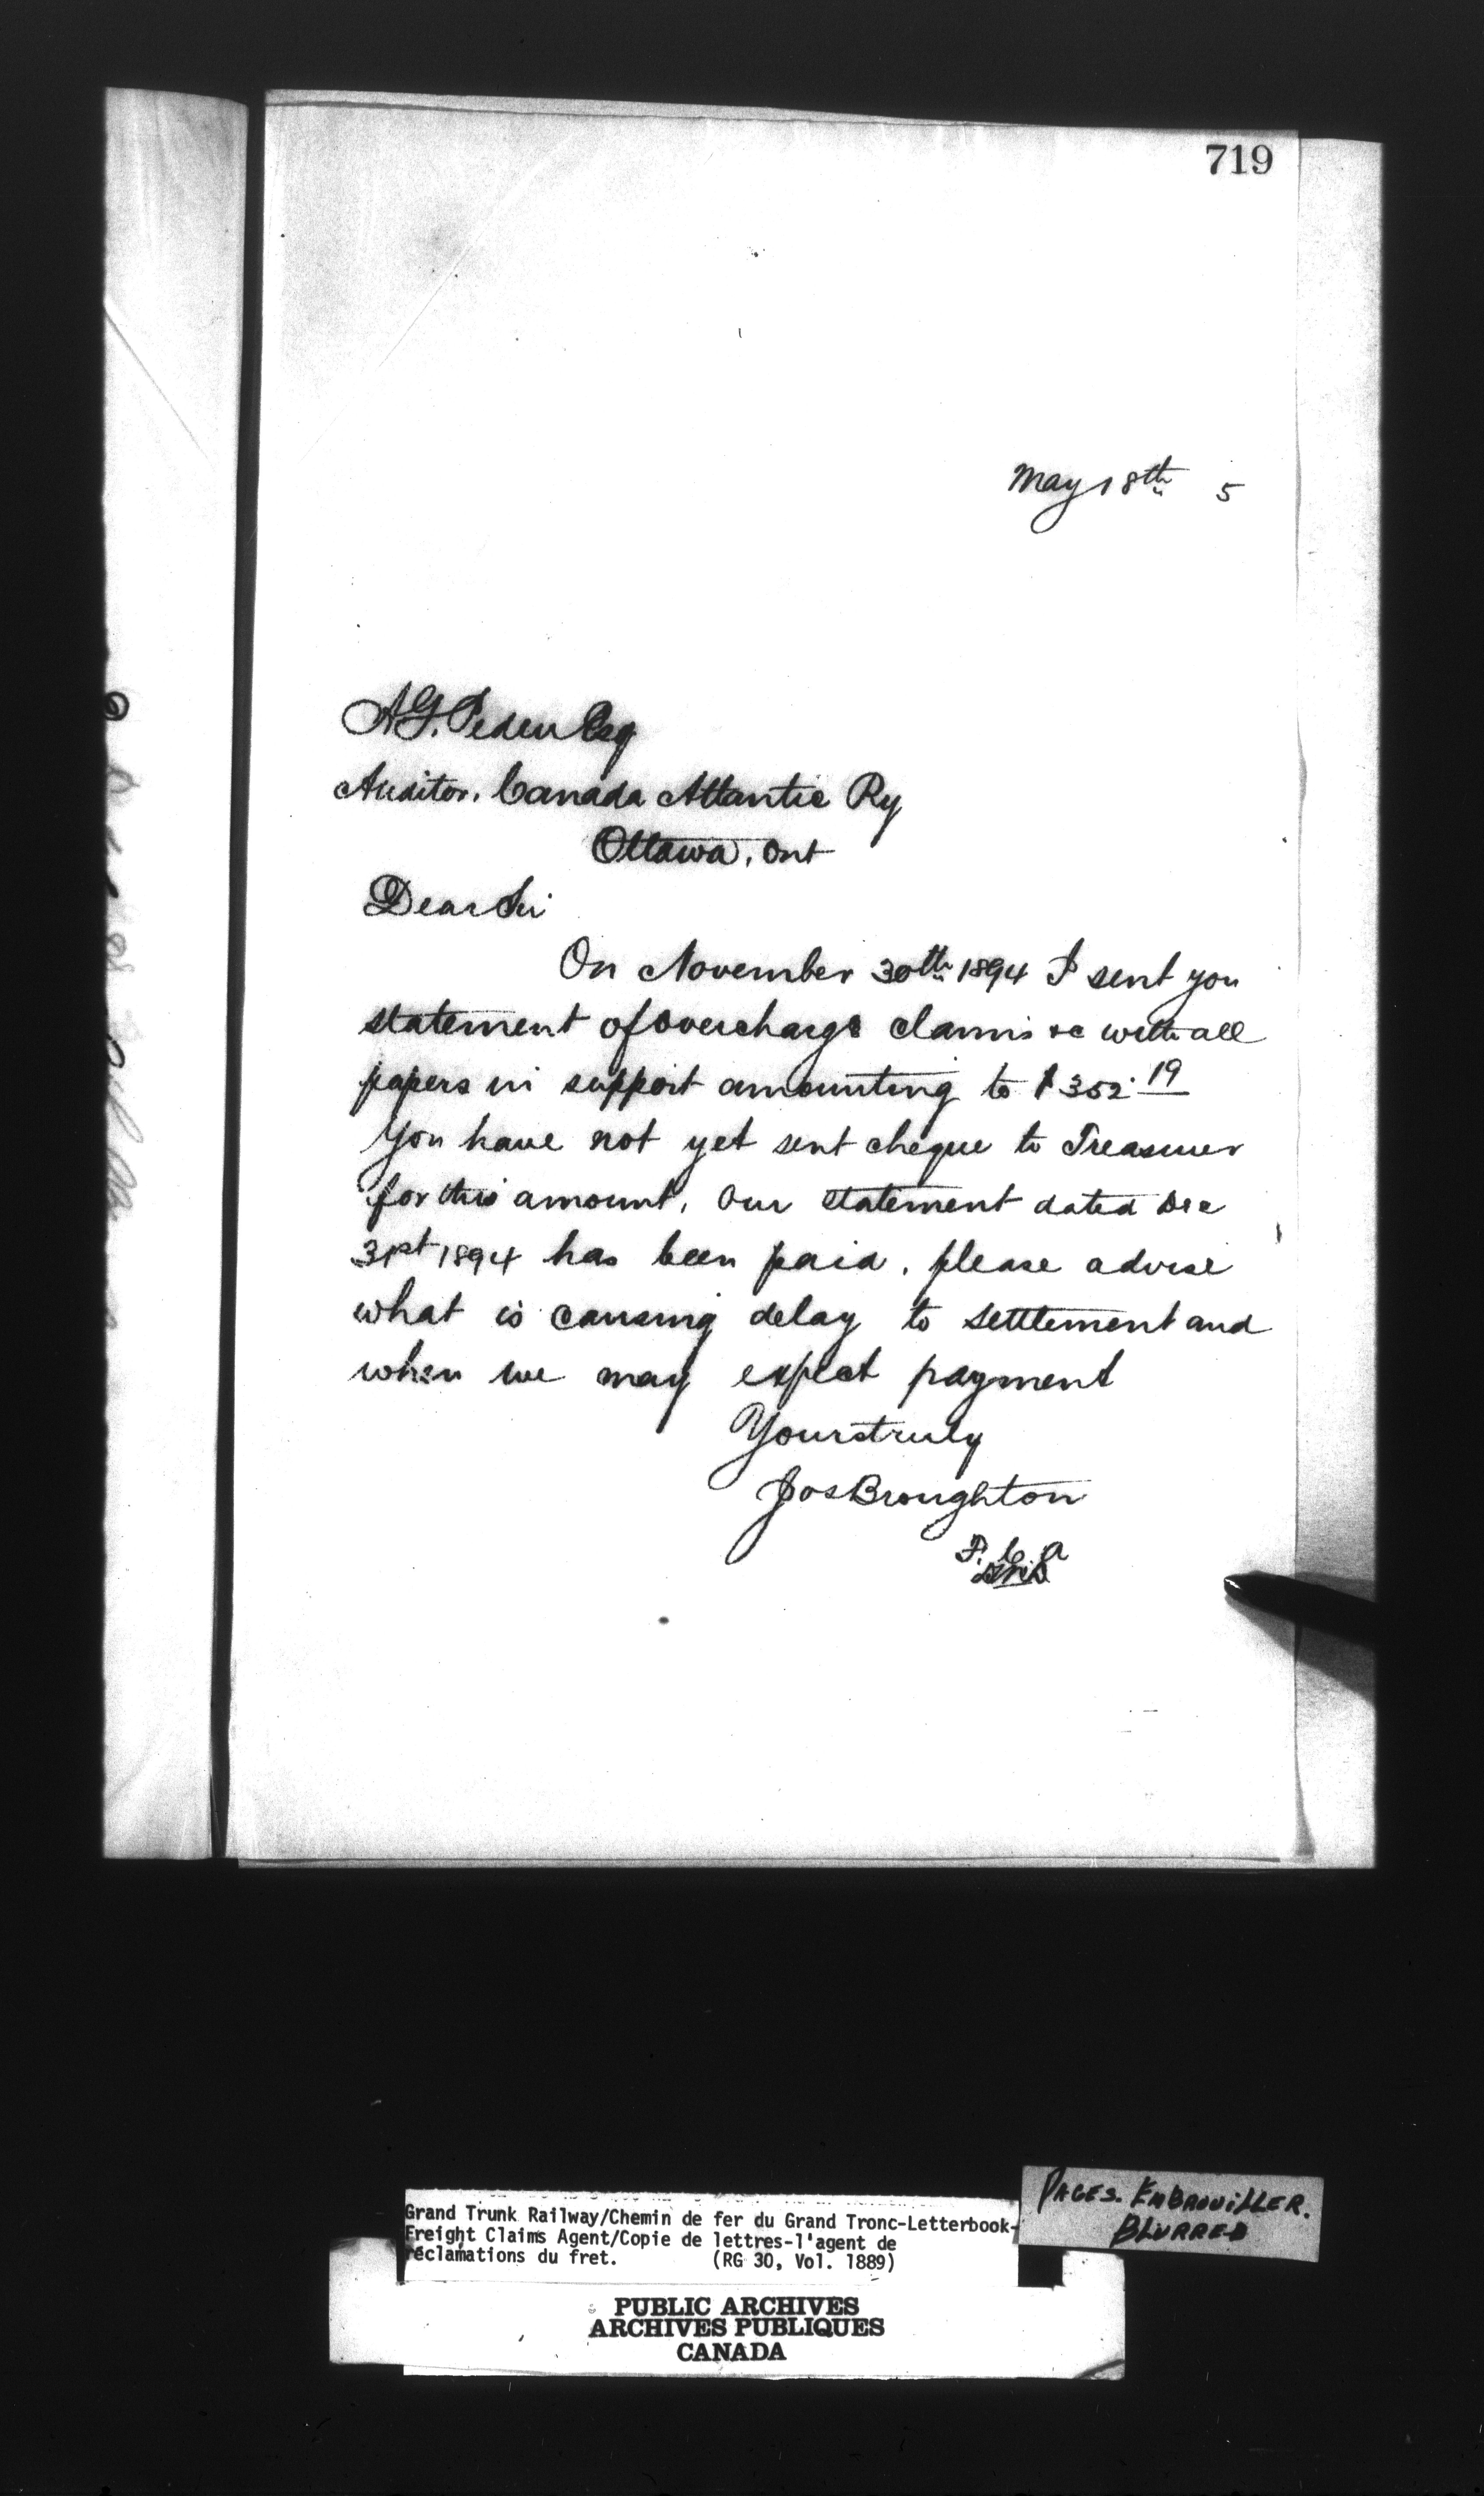 719
May 18th 5
A.G. Peden Esq
Auditor. Canada Atlantic Ry
Ottawa, Ont
Dear Sir
On November 30th 1894 I sent you
statement of overcharge claims &c with all
papers in support amounting to $352.19
You have not yet sent cheque to Treasurer
for this amount, Our statement dated Dec
31st 1894 has been paid, please advise
what is causing delay to settlement and
when we may expect payment
Yours truly
Jos Broughton
F. C. A
Grand Trunk Railway/Chemin de fer du Grand Tronc-Letterbook-
Freight Claims Agent/Copie de lettres-l'agent de
réclamations du fret. (RG 30, Vol. 1889)
PAGES. EMBROUILLER.
BLURRED
PUBLIC ARCHIVES
ARCHIVES PUBLIQUES
CANADA